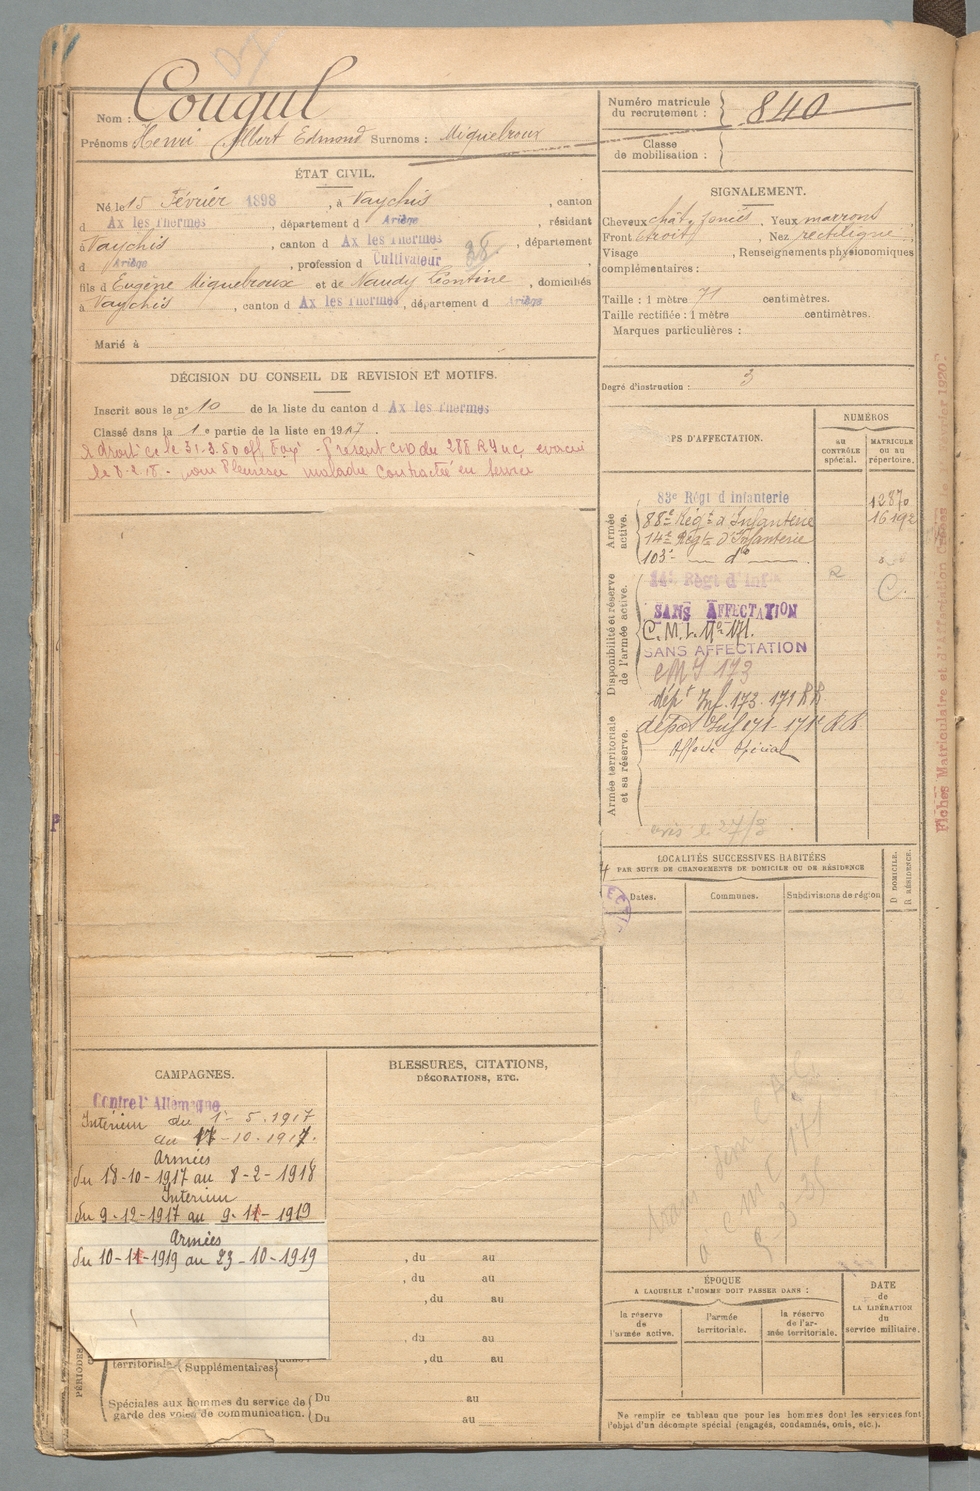 Nom : Cougul
Prénoms Henri Albert Edmond Surnoms : Miquelroux
ÉTAT CIVIL.
Né le 15 Février 1898, à Vaychis, canton
d Ax les Thermes, département d Ariège, résidant
à Vaychis, canton d Ax les Thermes, département
d Ariège, profession d Cultivateur 38
fils d Eugène Miquelroux et de Naudy Léontine, domiciliés
à Vaychis, canton d Ax les Thermes, département d Ariège
Marié à
DÉCISION DU CONSEIL DE REVISION ET MOTIFS.
Inscrit sous le n° 10 de la liste du canton d Ax les Thermes
Classé dans la 1e partie de la liste en 1917.
du 288 R évacué
le 8-2-18 - pour Pleurésie maladie contractée en service
CAMPAGNES.
Contre l'Allemagne
Intérieur du 1-5-1917
au 17-10-1917.
Armées
du 18-10-1917 au 8-2-1918
Intérieur
du 9-12-1917 au 9-11-1919
Armées
du 10-11-1919 au 23-10-1919
BLESSURES, CITATIONS,
DÉCORATIONS, ETC.
, du au
, du au
, du au
, du au
PÉRIODES
territoriale. Supplémentaires , du au
Spéciales aux hommes du service de Du au
garde des voies de communication. Du au
Numéro matricule
du recrutement : 840
Classe
de mobilisation :
SIGNALEMENT.
Cheveux chât foncés. Yeux marrons
Front étroit, Nez rectiligne
Visage , Renseignements physionomiques
complémentaires :
Taille : 1 mètre 71 centimètres.
Taille rectifiée : 1 mètre centimètres.
Marques particulières :
Degré d'instruction : 3
PS D'AFFECTATION.
NUMÉROS
au
CONTRÔLE
spécial.
MATRICULE
ou au
répertoire.
Armée
active.
83e Régt d'Infanterie 12870
88e Régt d'Infanterie 16192
14e Régt d'Infanterie
103e - do -
Disponibilité et réserve
de l'armée active.
14e Régt d'Inf
SANS AFFECTATION
C.M.I. No 171.
SANS AFFECTATION
CMI 173
dépt Inf. 173. 171 RR
Armée territoriale
et sa réserve.
dépôt Inf 171 - 171e RR
Affecté Spécial
le 27/8
LOCALITÉS SUCCESSIVES HABITÉES
PAR SUITE DE CHANGEMENTS DE DOMICILE OU DE RÉSIDENCE
Dates.
Communes.
Subdivisions de région
D. DOMICILE.
R. RÉSIDENCE.
CMI 171
ÉPOQUE
A LAQUELLE L'HOMME DOIT PASSER DANS :
la réserve
de
l'armée active.
l'armée
territoriale.
la réserve
de l'ar-
mée territoriale.
DATE
de
LA LIBÉRATION
du
service militaire.
Ne remplir ce tableau que pour les hommes dont les services font
l'objet d'un décompte spécial (engagés, condamnés, omis, etc.).
Fiches Matriculaire et d'Affectation Créées le Février 1920